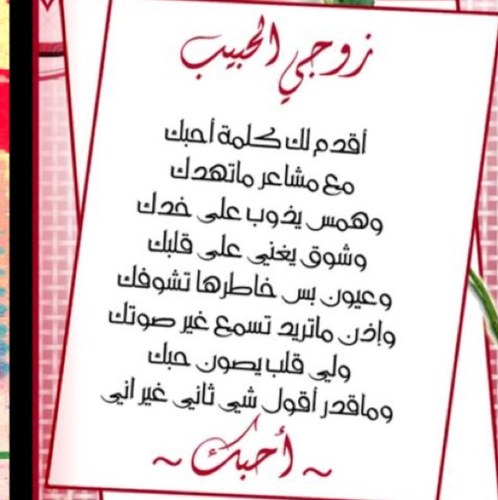 زوجي الحبيب
أقدم لك كلمة أحبك
مع مشاعر ماتهدك
وهمس يذوب على خدك
وشوق يغني على قلبك
وعيون بس خاطرها تشوفك
وإذن ماتريد تسمع غير صوتك
ولي قلب يصون حبك
وماقدر أقول شي ثاني غير اني
~ أحبك ~